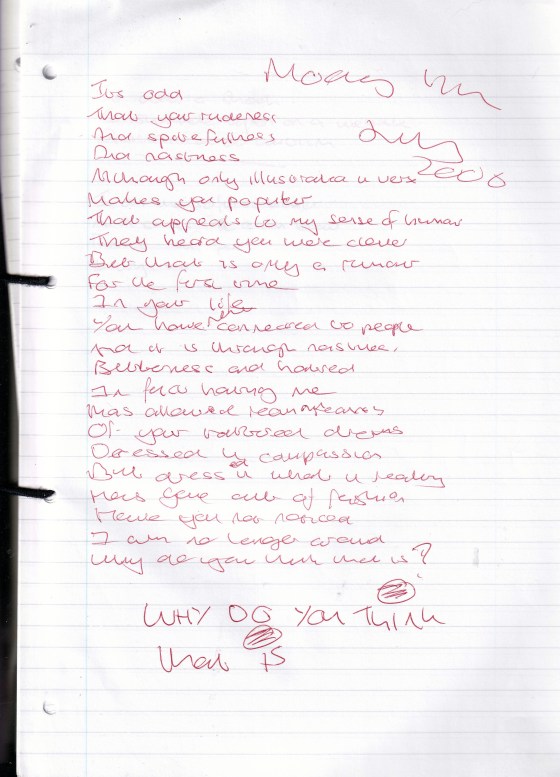 Its odd
That your rudeness
And spitefulness
And nastiness
Although only illustrated in verse
2008
Makes you popular
That appeals to my sense of humour
They heard you were clever
But that is only a rumour
For the first time
In your life
You have connected to people
And it is through nastiness,
Bitterness and hatred
In fact hating me
Has allowed
Of your dreams
Dressed in compassion
But dressed in what is really
Has gone out of fashion
Have you not noticed
I am no longer around
Why do you think that is?
WHY DO YOU THINK
that is